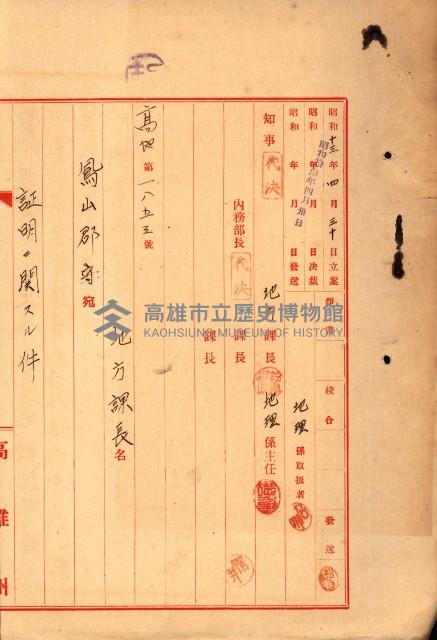 昭和十三年四月三十日立案
昭和 年 月 日決裁
昭和 年 月 日發送
校合
發送
地理係取扱者
知事 代決
地方課長
地理係主任
內務部長 代決
課長
課長
高地第一八五三號
地方課長名
鳳山郡守宛
証明ニ関スル件
高雄州
高雄市立歷史博物館
KAOHSIUNG MUSEUM OF HISTORY